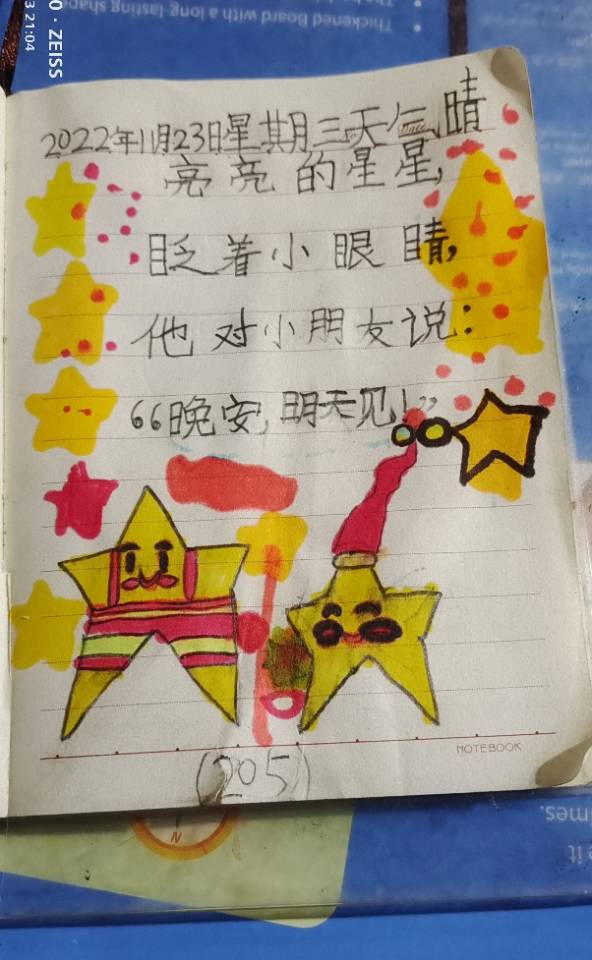 2022年11月23日星期三天气晴
亮亮的星星,
眨着小眼睛,
他对小朋友说:
“晚安,明天见!”
NOTEBOOK
(205)
O · ZEISS
3 21:04
Thickened Board with a long lasting shape
The
N
imes.
e it